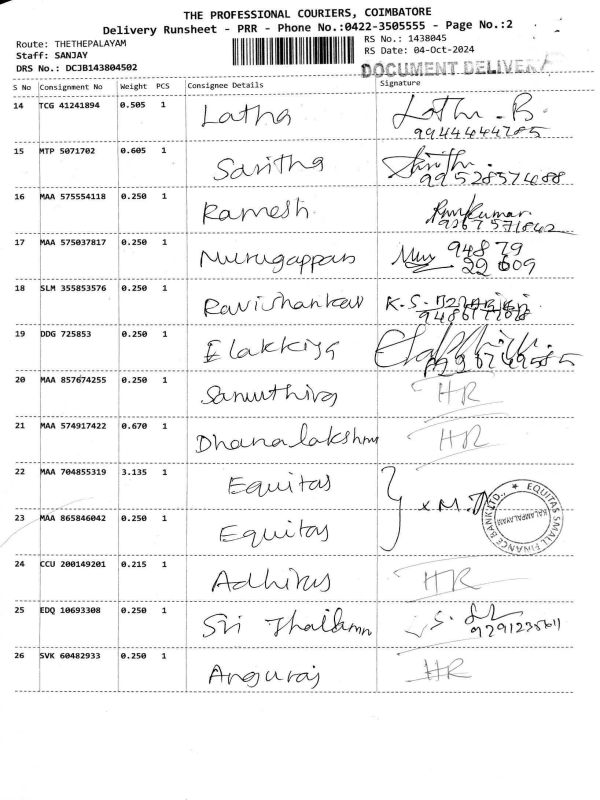 THE PROFESSIONAL COURIERS, COIMBATORE
Delivery Runsheet - PRR - Phone No.:0422-3505555 - Page No.:2
Route: THETHEPALAYAM
RS No.: 1438045
Staff: SANJAY
RS Date: 04-Oct-2024
DRS No.: DCJB143804502
DOCUMENT DELIVERY
S No Consignment No Weight PCS Consignee Details Signature
14 TCG 41241894 0.505 1 Latha Latha. B.
9944444785
15 MTP 5071702 0.605 1 Saritha
9952857688
16 MAA 575554118 0.250 1 Ramesh Ramkumar
17 MAA 575037817 0.250 1 Murugappan 94879
22609
18 SLM 355853576 0.250 1 Ravishankar K.S.
19 DDG 725853 0.250 1 Elakkiya
20 MAA 857674255 0.250 1 HR
21 MAA 574917422 0.670 1 Dhanalakshmi HR
22 MAA 704855319 3.135 1 Equitas
23 MAA 865846042 0.250 1 Equitas
EQUITAS SMALL FINANCE BANK LTD.,
KALAMPALAYAM
24 CCU 200149201 0.215 1 HR
25 EDQ 10693308 0.250 1 Sri S.
26 SVK 60482933 0.250 1 Anguraj HR